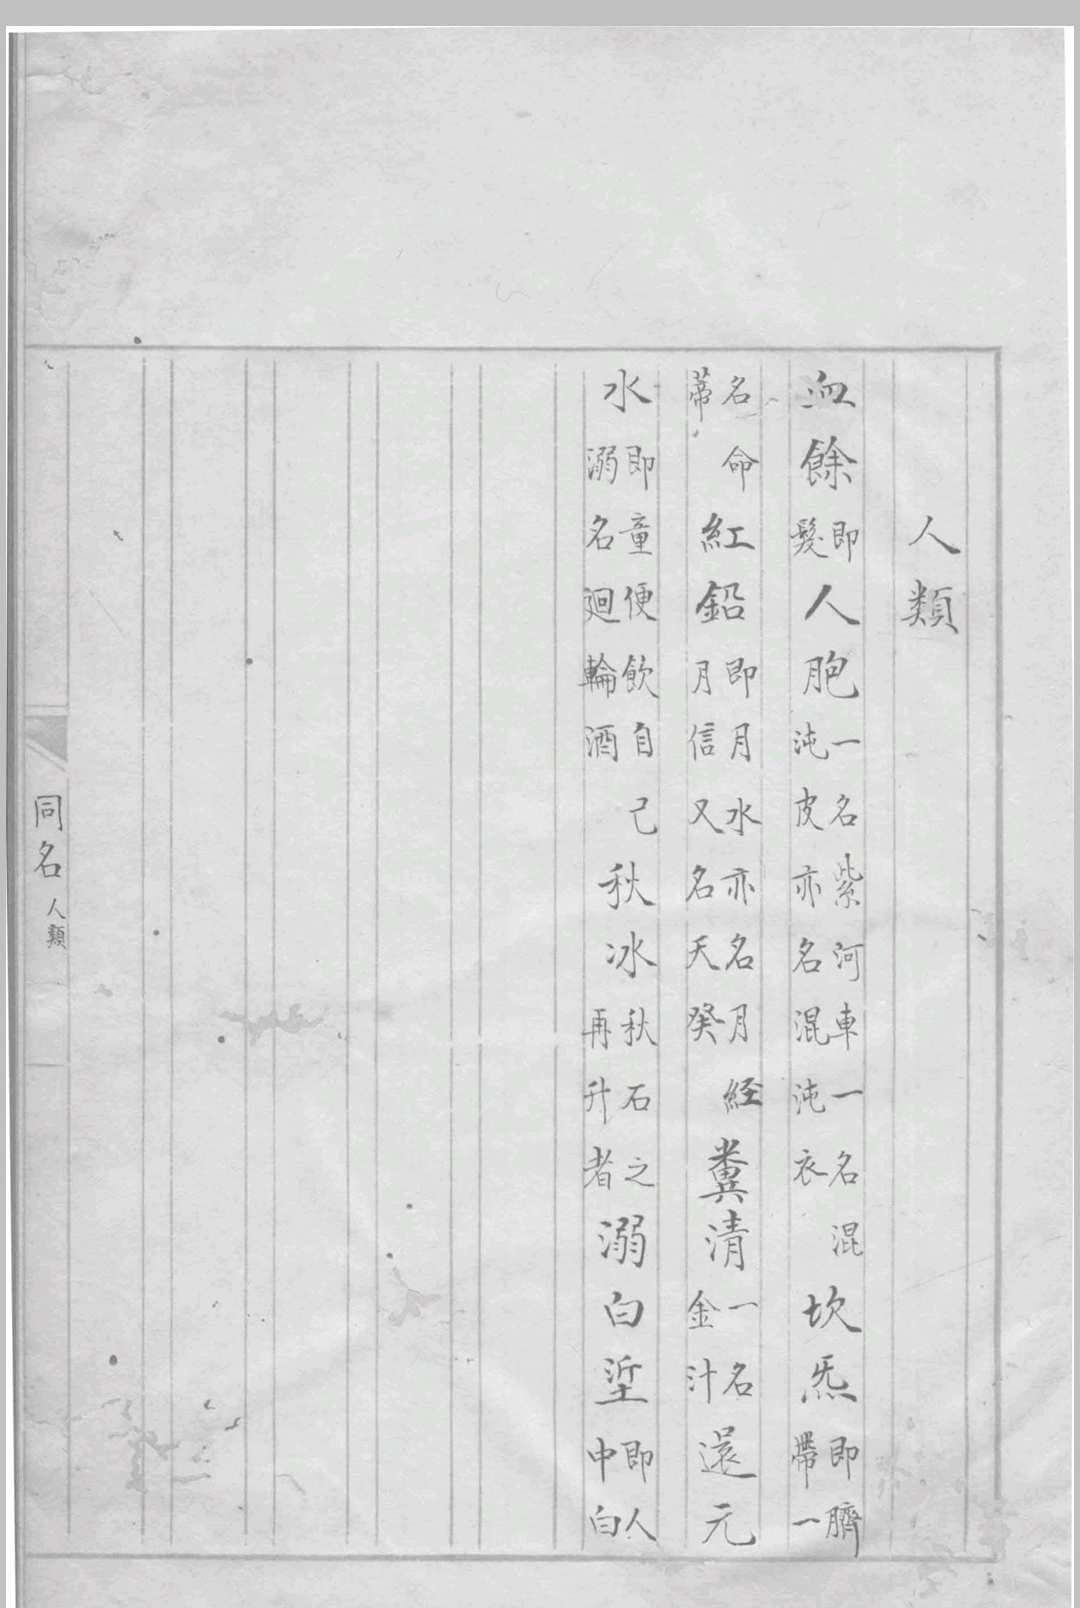 人類
血餘即髮人胞一名紫河車一名混沌皮亦名混沌衣坎炁即臍帶一
名命蒂紅鉛即月水亦名月經月信又名天癸糞清一名金汁還元
水即童便飲自己溺名迴輪酒秋冰秋石之再升者溺白垽即人中白
同名人類